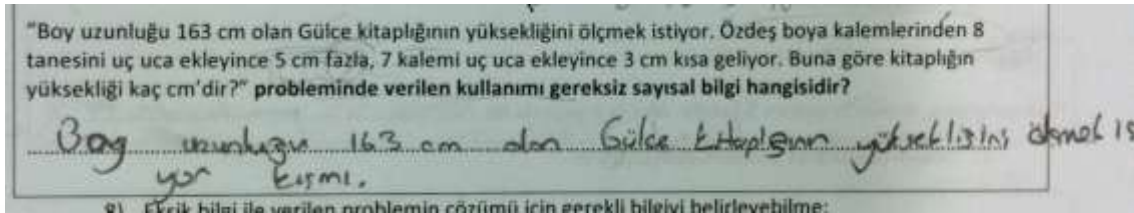 "Boy uzunluğu 163 cm olan Gülce kitaplığının yüksekliğini ölçmek istiyor. Özdeş boya kalemlerinden 8
tanesini uç uca ekleyince 5 cm fazla, 7 kalemi uç uca ekleyince 3 cm kısa geliyor. Buna göre kitaplığın
yüksekliği kaç cm'dir?" probleminde verilen kullanımı gereksiz sayısal bilgi hangisidir?
Boy uzunluğu 163 cm olan Gülce kitaplığının yüksekliğini ölçmek is
yor kısmı.
8) Eksik bilgi ile verilen problemin çözümü için gerekli bilgiyi belirleyebilme: